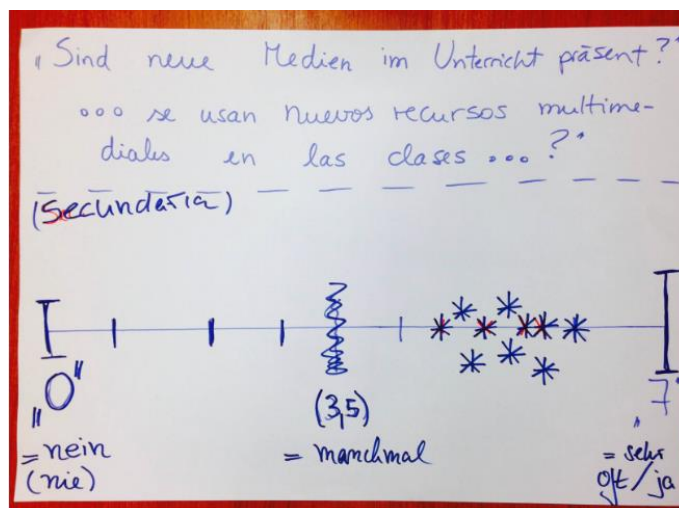 „Sind neue Medien im Unterricht präsent?“
... se usan nuevos recursos multime-
diales en las clases ...?“
(Secundaria)
„0“
(3,5)
„7“
= nein
(nie)
= manchmal
= sehr
oft/ja